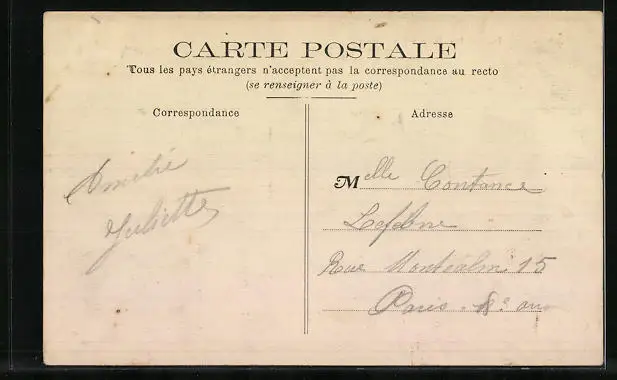 CARTE POSTALE
Tous les pays étrangers n'acceptent pas la correspondance au recto
(se renseigner à la poste)
Correspondance
Amitié
Juliette
Adresse
Melle Contance
Lefebvre
Rue Montcalm 15
Paris